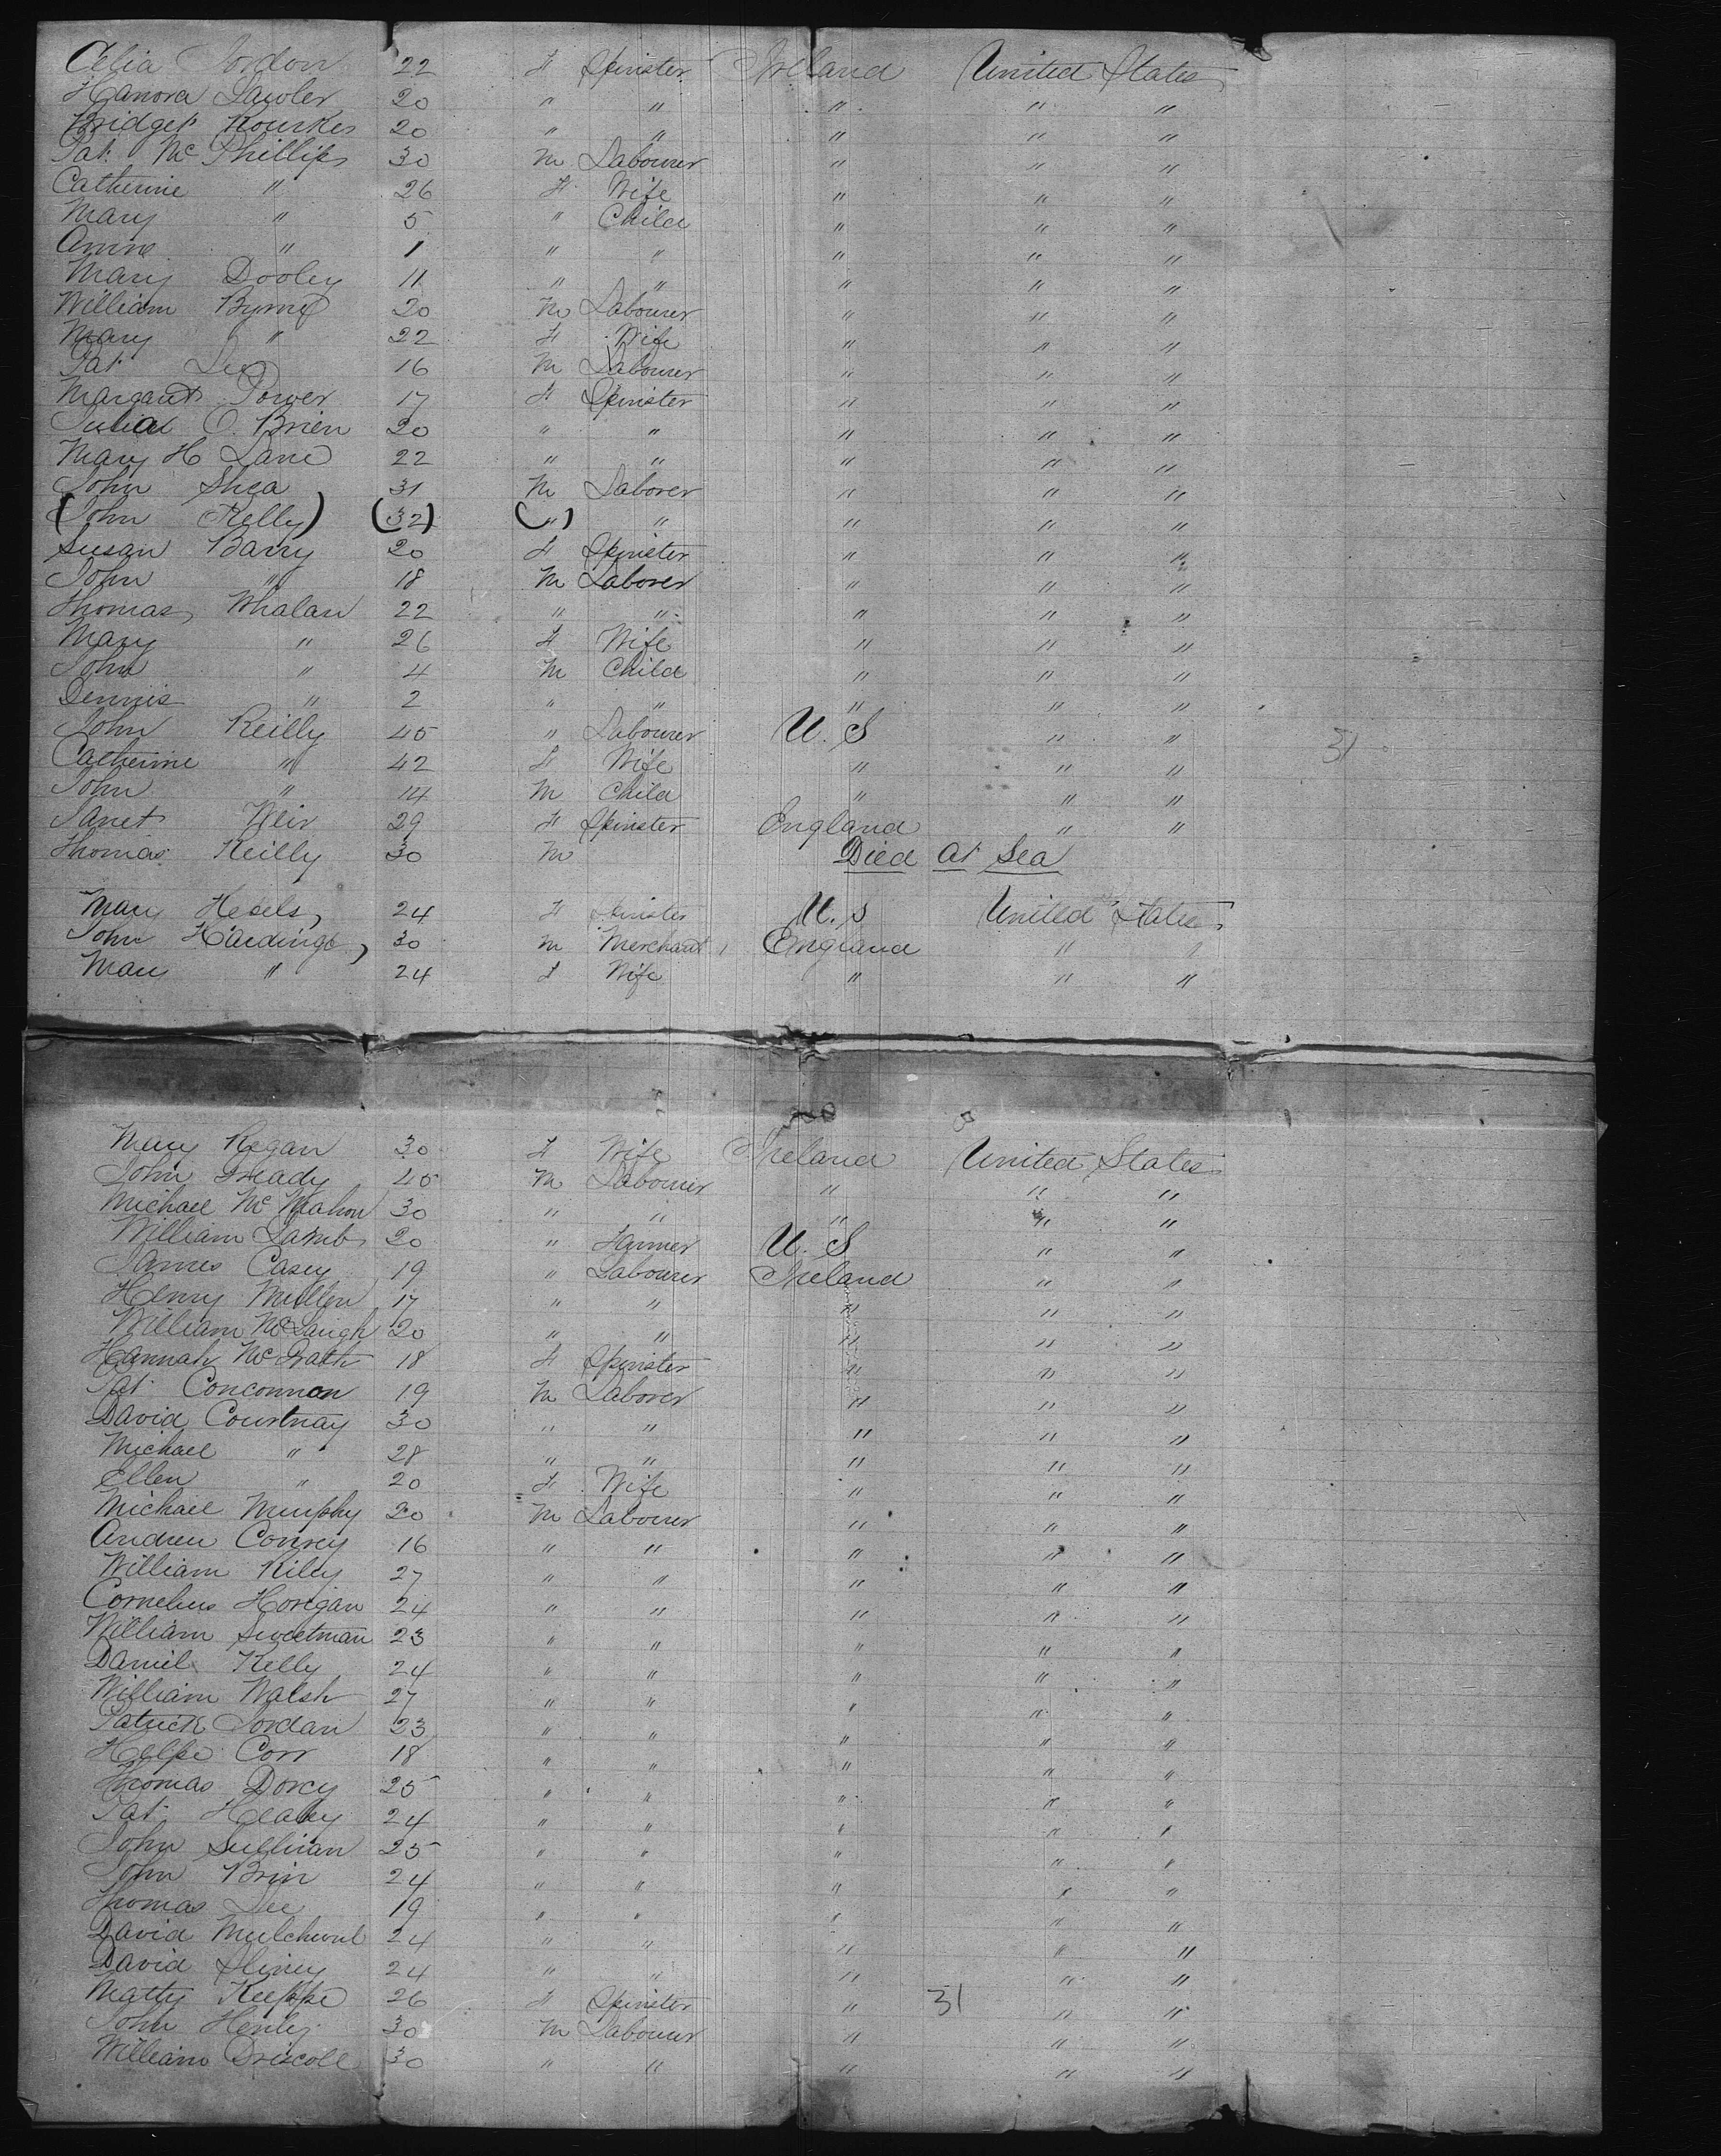 Celia Jordon 22 F Spinster Ireland United States
Hanora Lawler 20 " " " " "
Bridget Rourke 20 " " " " "
Pat. McPhillips 30 M Labourer " " "
Catherine " 26 F Wife " " "
Mary " 5 " Child " " "
Annie " 1 " " " " "
Mary Dooley 11 " " " " "
William Byrne 20 M Labourer " " "
Mary " 22 F Wife " " "
Pat Lee 16 M Labourer " " "
Margaret Power 17 F Spinster " " "
Julia O. Brien 20 " " " " "
Mary H Lane 22 " " " " "
John Shea 31 M Laborer " " "
(John Kelly) (32) (") " " " "
Susan Barry 20 F Spinster " " "
John " 18 M Laborer " " "
Thomas Whalan 22 " " " " "
Mary " 26 F Wife " " "
John " 4 M Child " " "
Dennis " 2 " " " " "
John Reilly 45 " Labourer U. S " " 31
Catherine " 42 F Wife " " "
John " 14 M Child " " "
Janet Weir 29 F Spinster England " "
Thomas Reilly 30 M Died At Sea
Mary 24 F Spinster U. S United States
John Hardinge 30 M Merchant England " "
Mary " 24 F Wife " " "
Mary Regan 30 F Wife Ireland United States
John 45 M Labourer " " "
Michael McMahon 30 " " " " "
William Lamb 20 " Farmer U. S " "
James Casey 19 " Labourer Ireland " "
Henry Mullen 17 " " " " "
William 20 " " " " "
Hannah McGrath 18 F Spinster " " "
Pat Conconnon 19 M Laborer " " "
David Courtnay 30 " " " " "
Michael " 28 " " " " "
Ellen " 20 F Wife " " "
Michael Murphy 20 M Labourer " " "
Andrew Conrey 16 " " " " "
William Riley 27 " " " " "
Cornelius Horigan 24 " " " " "
William Sweetman 23 " " " " "
Daniel Kelly 24 " " " " "
William Walsh 27 " " " " "
Patrick Jordan 23 " " " " "
Corr 18 " " " " "
Thomas Dorcy 25 " " " " "
Pat. Healey 24 " " " " "
John Sullivan 25 " " " " "
John Brin 24 " " " " "
Thomas Lee 19 " " " " "
David 24 " " " " "
David Sliney 24 " " " " "
Matty 26 F Spinster " 31 " "
John Henley 30 M Labourer " " "
William Driscoll 30 " " " " "